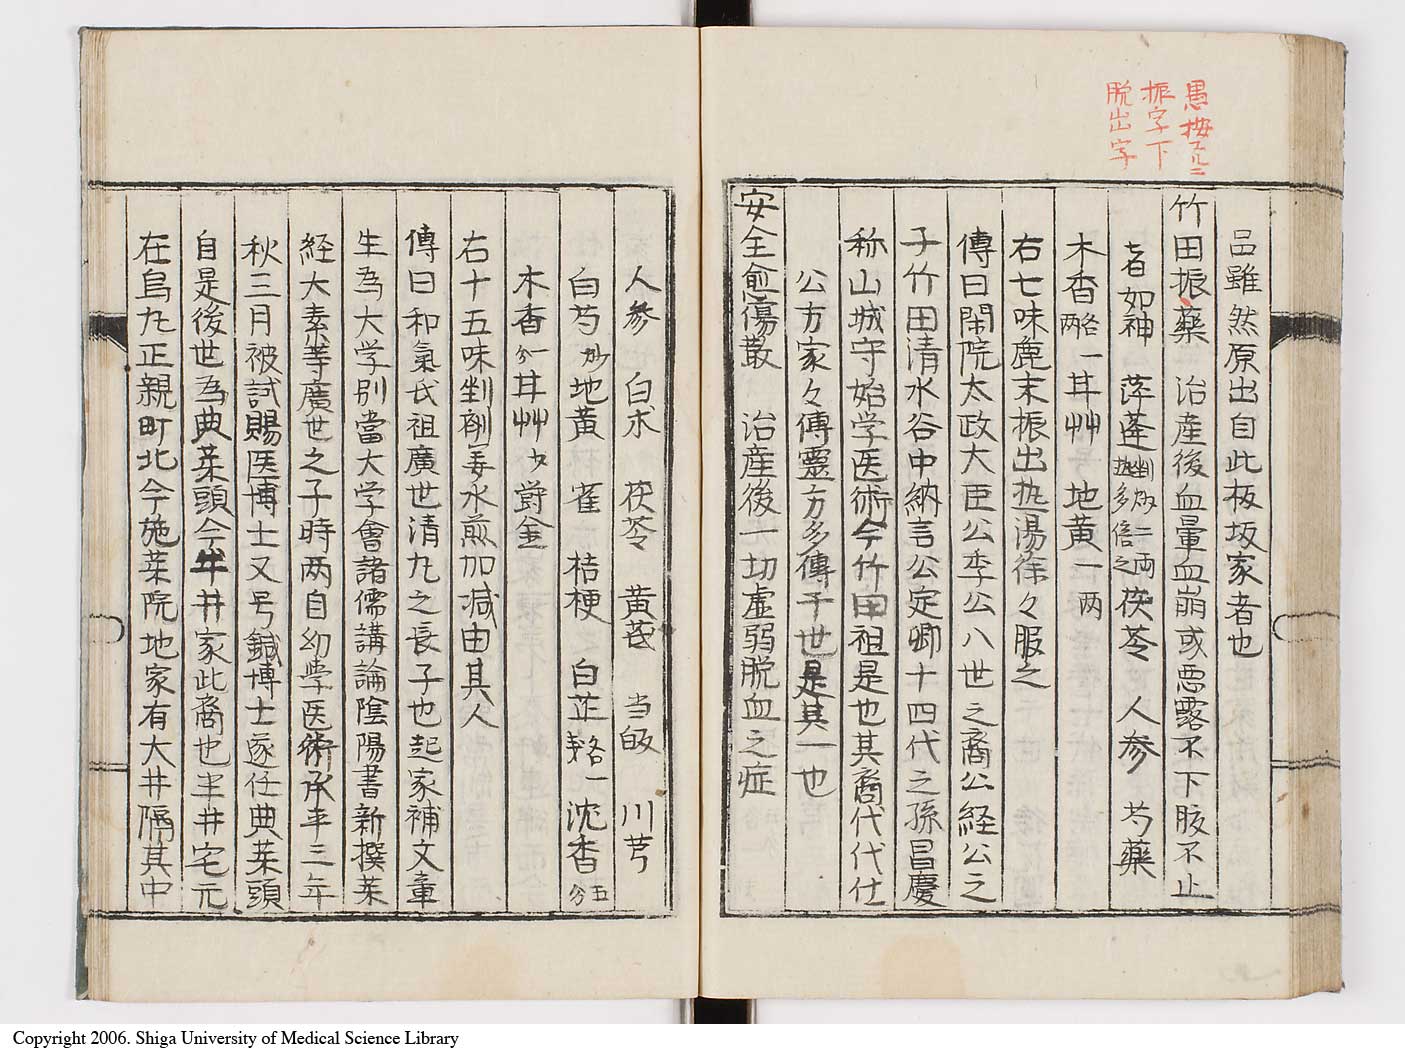 愚按スルニ
振字下
脱出字
呂雖然原出自此板坂家者也
竹田振藥　治産後血暈血崩或悪露不下腹不止
者如神　萍蓬剉炒二両熱多倍之　茯苓　人参　芍藥
木香略一両　甘艸　地黄一両
右七味麁末振出热湯徐々服之
傳曰閑院太政大臣公季公八世之裔公経公之
子竹田清水谷中納言公定卿十四代之孫昌慶
称山城守始学医術今竹田祖是也其裔代代仕
公方家々傳靈方多傳于世是其一也
安全愈傷散　治産後一切虚弱脱血之症
人參　白朮　茯苓　黄芪　当皈　川芎
白芍炒　地黄　雀　桔梗　白芷略一　沈香五分
木香一分　甘艸少　欝金
右十五味剉剤毎水煎加減由其人
傳曰和氣氏祖廣世清丸之長子也起家補文章
生為大学別當大学會諸儒講論陰陽書新撰薬
経大素等廣世之子時两自幼學医術承平三年
秋三月被試賜医博士又号鍼博士遂任典薬頭
自是後世為典薬頭今半井家此裔也半井宅元
在烏丸正親町北今施薬院地家有大井隔其中
Copyright 2006. Shiga University of Medical Science Library